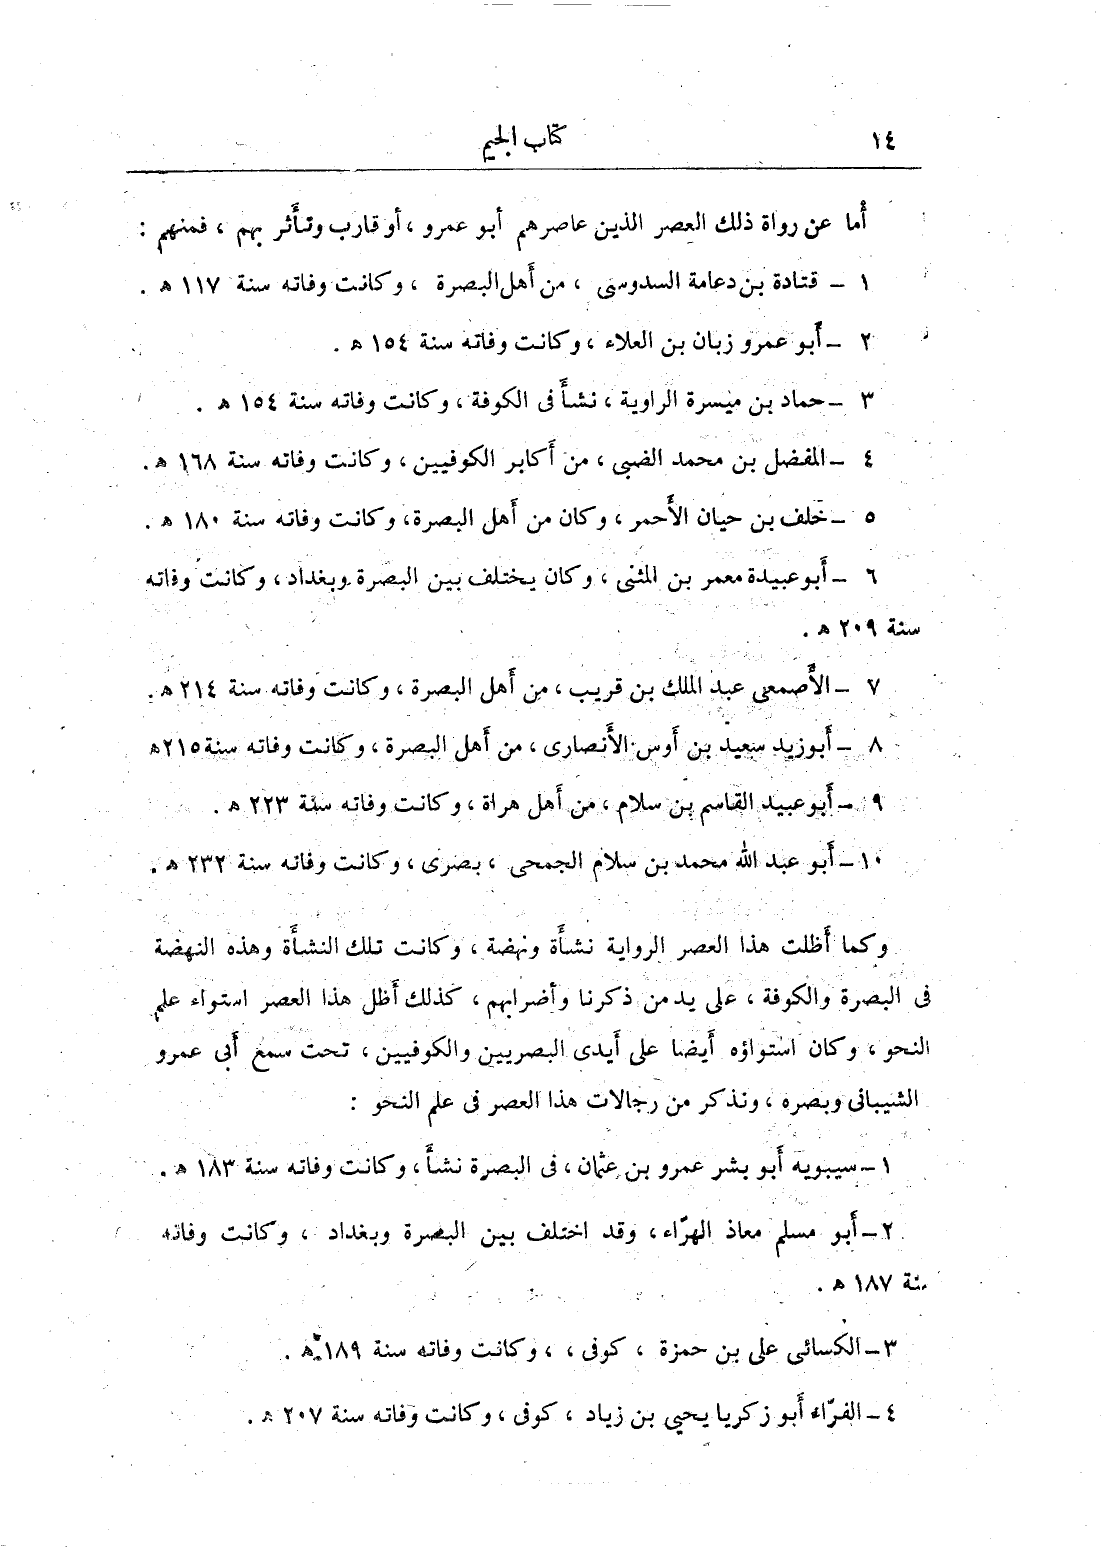 ١٤
كتاب الجيم
أما عن رواة ذلك العصر الذين عاصرهم أبو عمرو ، أو قارب وتأثر بهم ، فمنهم :
١ – قتادة بن دعامة السدوسى ، من أهل البصرة ، وكانت وفاته سنة ١١٧ ه .
٢ – أبو عمرو زبان بن العلاء ، وكانت وفاته سنة ١٥٤ ه .
٣ – حماد بن ميسرة الراوية ، نشأ فى الكوفة ، وكانت وفاته سنة ١٥٤ ه .
٤ – المفضل بن محمد الضبى ، من أكابر الكوفيين ، وكانت وفاته سنة ١٦٨ ه .
٥ – خلف بن حيان الأحمر ، وكان من أهل البصرة ، وكانت وفاته سنة ١٨٠ ه .
٦ – أبو عبيدة معمر بن المثنى ، وكان يختلف بين البصرة وبغداد ، وكانت وفاته
سنة ٢٠٩ ه .
٧ – الأصمعى عبد الملك بن قريب ، من أهل البصرة ، وكانت وفاته سنة ٢١٤ ه .
٨ – أبو زيد سعيد بن أوس الأنصارى ، من أهل البصرة ، وكانت وفاته سنة ٢١٥ ه
٩ – أبو عبيد القاسم بن سلام ، من أهل هراة ، وكانت وفاته سنة ٢٢٣ ه .
١٠ – أبو عبد الله محمد بن سلام الجمحى ، بصرى ، وكانت وفاته سنة ٢٣٢ ه .
وكما أظلت هذا العصر الرواية نشأة ونهضة ، وكانت تلك النشأة وهذه النهضة
فى البصرة والكوفة ، على يد من ذكرنا وأضرابهم ، كذلك أظل هذا العصر استواء علم
النحو ، وكان استواؤه أيضا على أيدى البصريين والكوفيين ، تحت سمع أبى عمرو
الشيبانى وبصره ، ونذكر من رجالات هذا العصر فى علم النحو :
١ – سيبويه أبو بشر عمرو بن عثمان ، فى البصرة نشأ ، وكانت وفاته سنة ١٨٣ ه .
٢ – أبو مسلم معاذ الهرّاء ، وقد اختلف بين البصرة وبغداد ، وكانت وفاته
سنة ١٨٧ ه .
٣ – الكسائى على بن حمزة ، كوفى ، ، وكانت وفاته سنة ١٨٩ ه .
٤ – الفرّاء أبو زكريا يحيى بن زياد ، كوفى ، وكانت وفاته سنة ٢٠٧ ه .